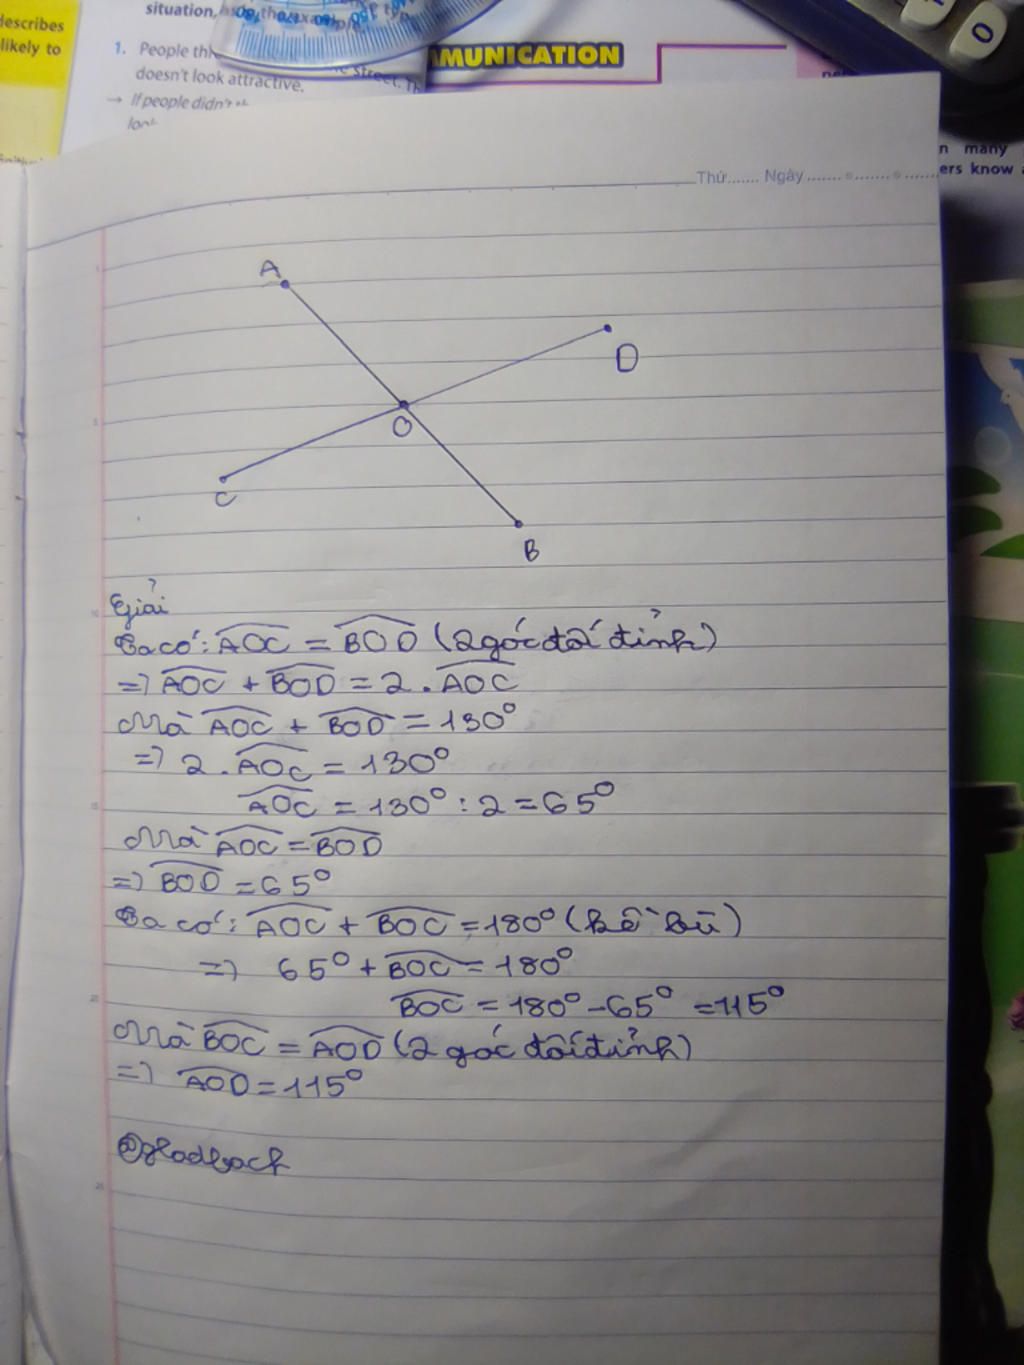 describes
likely to
situation,
1. People thi
doesn't look attractive.
street. Th
→ If people didn't
MUNICATION
n many
ers know
Thứ....... Ngày
A
D
O
C
B
Giải
Ta có: AOC = BOD (2 góc đối đỉnh)
=> AOC + BOD = 2 . AOC
Mà AOC + BOD = 130°
=> 2 . AOC = 130°
AOC = 130° : 2 = 65°
Mà AOC = BOD
=> BOD = 65°
Ta có: AOC + BOC = 180° (kề bù)
=> 65° + BOC = 180°
BOC = 180° - 65° = 115°
Mà BOC = AOD (2 góc đối đỉnh)
=> AOD = 115°